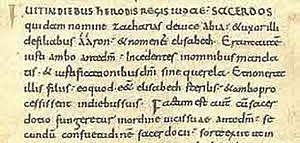 FUIT IN DIEBUS HERODIS REGIS IUDAEAE SACERDOS
quidam nomine zacharias de uice abia & uxor illi
de filiabus aaron & nomen ei elisabeth Erant autem
iusti ambo ante dm Incedentes in omnibus manda
tis & iustificationibus dni sine querela Et non erat
illis filius eo quod e& elisabeth sterilis & ambo pro
cessissent in diebus suis Factum est aut cu sacer
dotio fungeretur in ordine uicis suae ante dm se
cundum consuetudine sacerdotii sorte exiit ut in